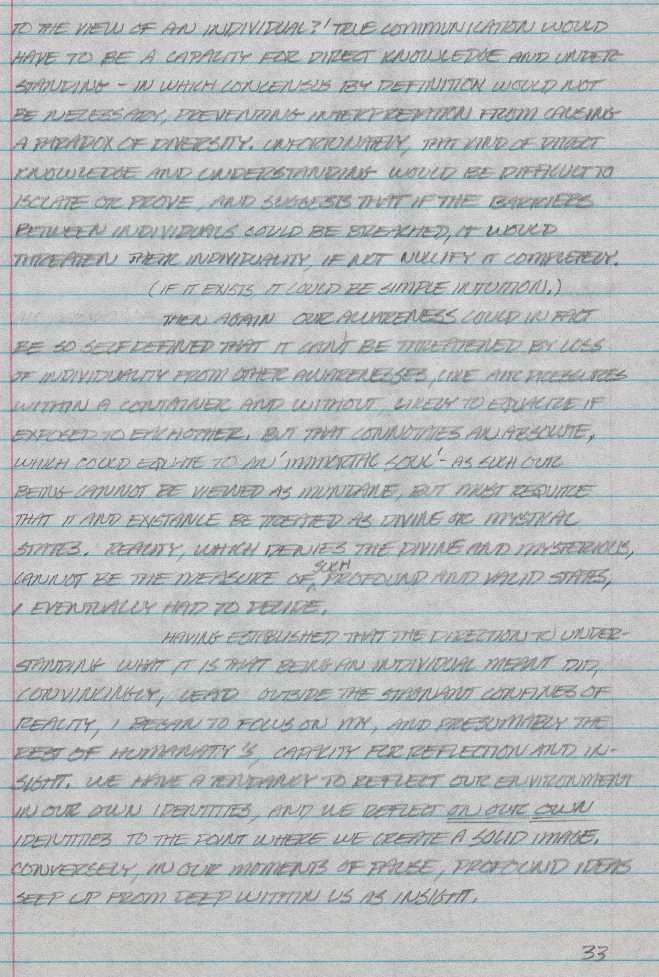 TO THE VIEW OF AN INDIVIDUAL?' TRUE COMMUNICATION WOULD
HAVE TO BE A CAPACITY FOR DIRECT KNOWLEDGE AND UNDER-
STANDING - IN WHICH CONCENSUS BY DEFINITION WOULD NOT
BE NECESSARY, PREVENTING INTERPRETATION FROM CAUSING
A PARADOX OF DIVERSITY. UNFORTUNATELY, THAT KIND OF DIRECT
KNOWLEDGE AND UNDERSTANDING WOULD BE DIFFICULT TO
ISOLATE OR PROVE, AND SUGGESTS THAT IF THE BARRIERS
BETWEEN INDIVIDUALS COULD BE BREACHED, IT WOULD
THREATEN THEIR INDIVIDUALITY, IF NOT NULLIFY IT COMPLETELY.
(IF IT EXISTS, IT COULD BE SIMPLE INTUITION.)
THEN AGAIN OUR AWARENESS COULD IN FACT
BE SO SELF DEFINED THAT IT CAN'T BE THREATENED BY LOSS
OF INDIVIDUALITY FROM OTHER AWARENESSES, LIKE AIR PRESSURES
WITHIN A CONTAINER AND WITHOUT, LIKELY TO EQUALIZE IF
EXPOSED TO EACHOTHER. BUT THAT CONNOTATES AN ABSOLUTE,
WHICH COULD EQUATE TO AN 'IMMORTAL SOUL' - AS SUCH OUR
BEING CANNOT BE VIEWED AS MUNDANE, BUT MUST REQUIRE
THAT IT AND EXISTANCE BE TREATED AS DIVINE OR MYSTICAL
STATES. REALITY, WHICH DENIES THE DIVINE AND MYSTERIOUS,
CANNOT BE THE MEASURE OF SUCH PROFOUND AND VALID STATES,
I EVENTUALLY HAD TO DECIDE.
HAVING ESTABLISHED THAT THE DIRECTION TO UNDER-
STANDING WHAT IT IS THAT BEING AN INDIVIDUAL MEANT DID,
CONVINCINGLY, LEAD OUTSIDE THE STAGNANT CONFINES OF
REALITY, I BEGAN TO FOCUS ON MY, AND PRESUMABLY THE
REST OF HUMANITY'S, CAPACITY FOR REFLECTION AND IN-
SIGHT. WE HAVE A TENDANCY TO REFLECT OUR ENVIRONMENT
IN OUR OWN IDENTITIES, AND WE REFLECT ON OUR OWN
IDENTITIES TO THE POINT WHERE WE CREATE A SOLID IMAGE.
CONVERSELY, IN OUR MOMENTS OF PAUSE, PROFOUND IDEAS
SEEP UP FROM DEEP WITHIN US AS INSIGHT.
33